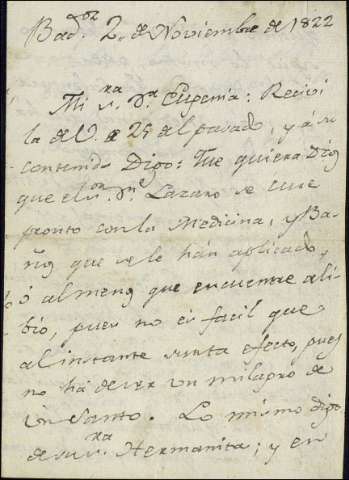 Bad.oz 2 de Noviembre de 1822
Mi s.ra D.a Eugenia: Recivi
la de V. 25 del pasado, y á su
contenido Digo: Que quiera Dios
que el s.or D.n Lazaro se cure
pronto con la Medicina, y Ba-
ños que se le hán aplicado,
ó al menos que encuentre ali-
bio, pues no es facil que
al instante surta efecto, pues
no há de ser un milagro de
un Santo. Lo mismo digo
de su s.ra Hermanita; y en